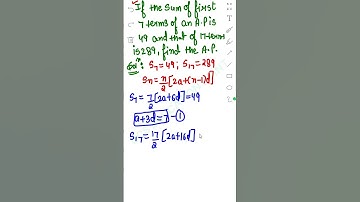 If the Sum of first
7 terms of an A.P is
49 and that of 17 term
is 289, find the A.P.
S₇ = 49; S₁₇ = 289
Sn = n/2 [2a+(n-1)d]
S₇ = 7/2 [2a+6d] = 49
a+3d = 7 - ①
S₁₇ = 17/2 [2a+16d]